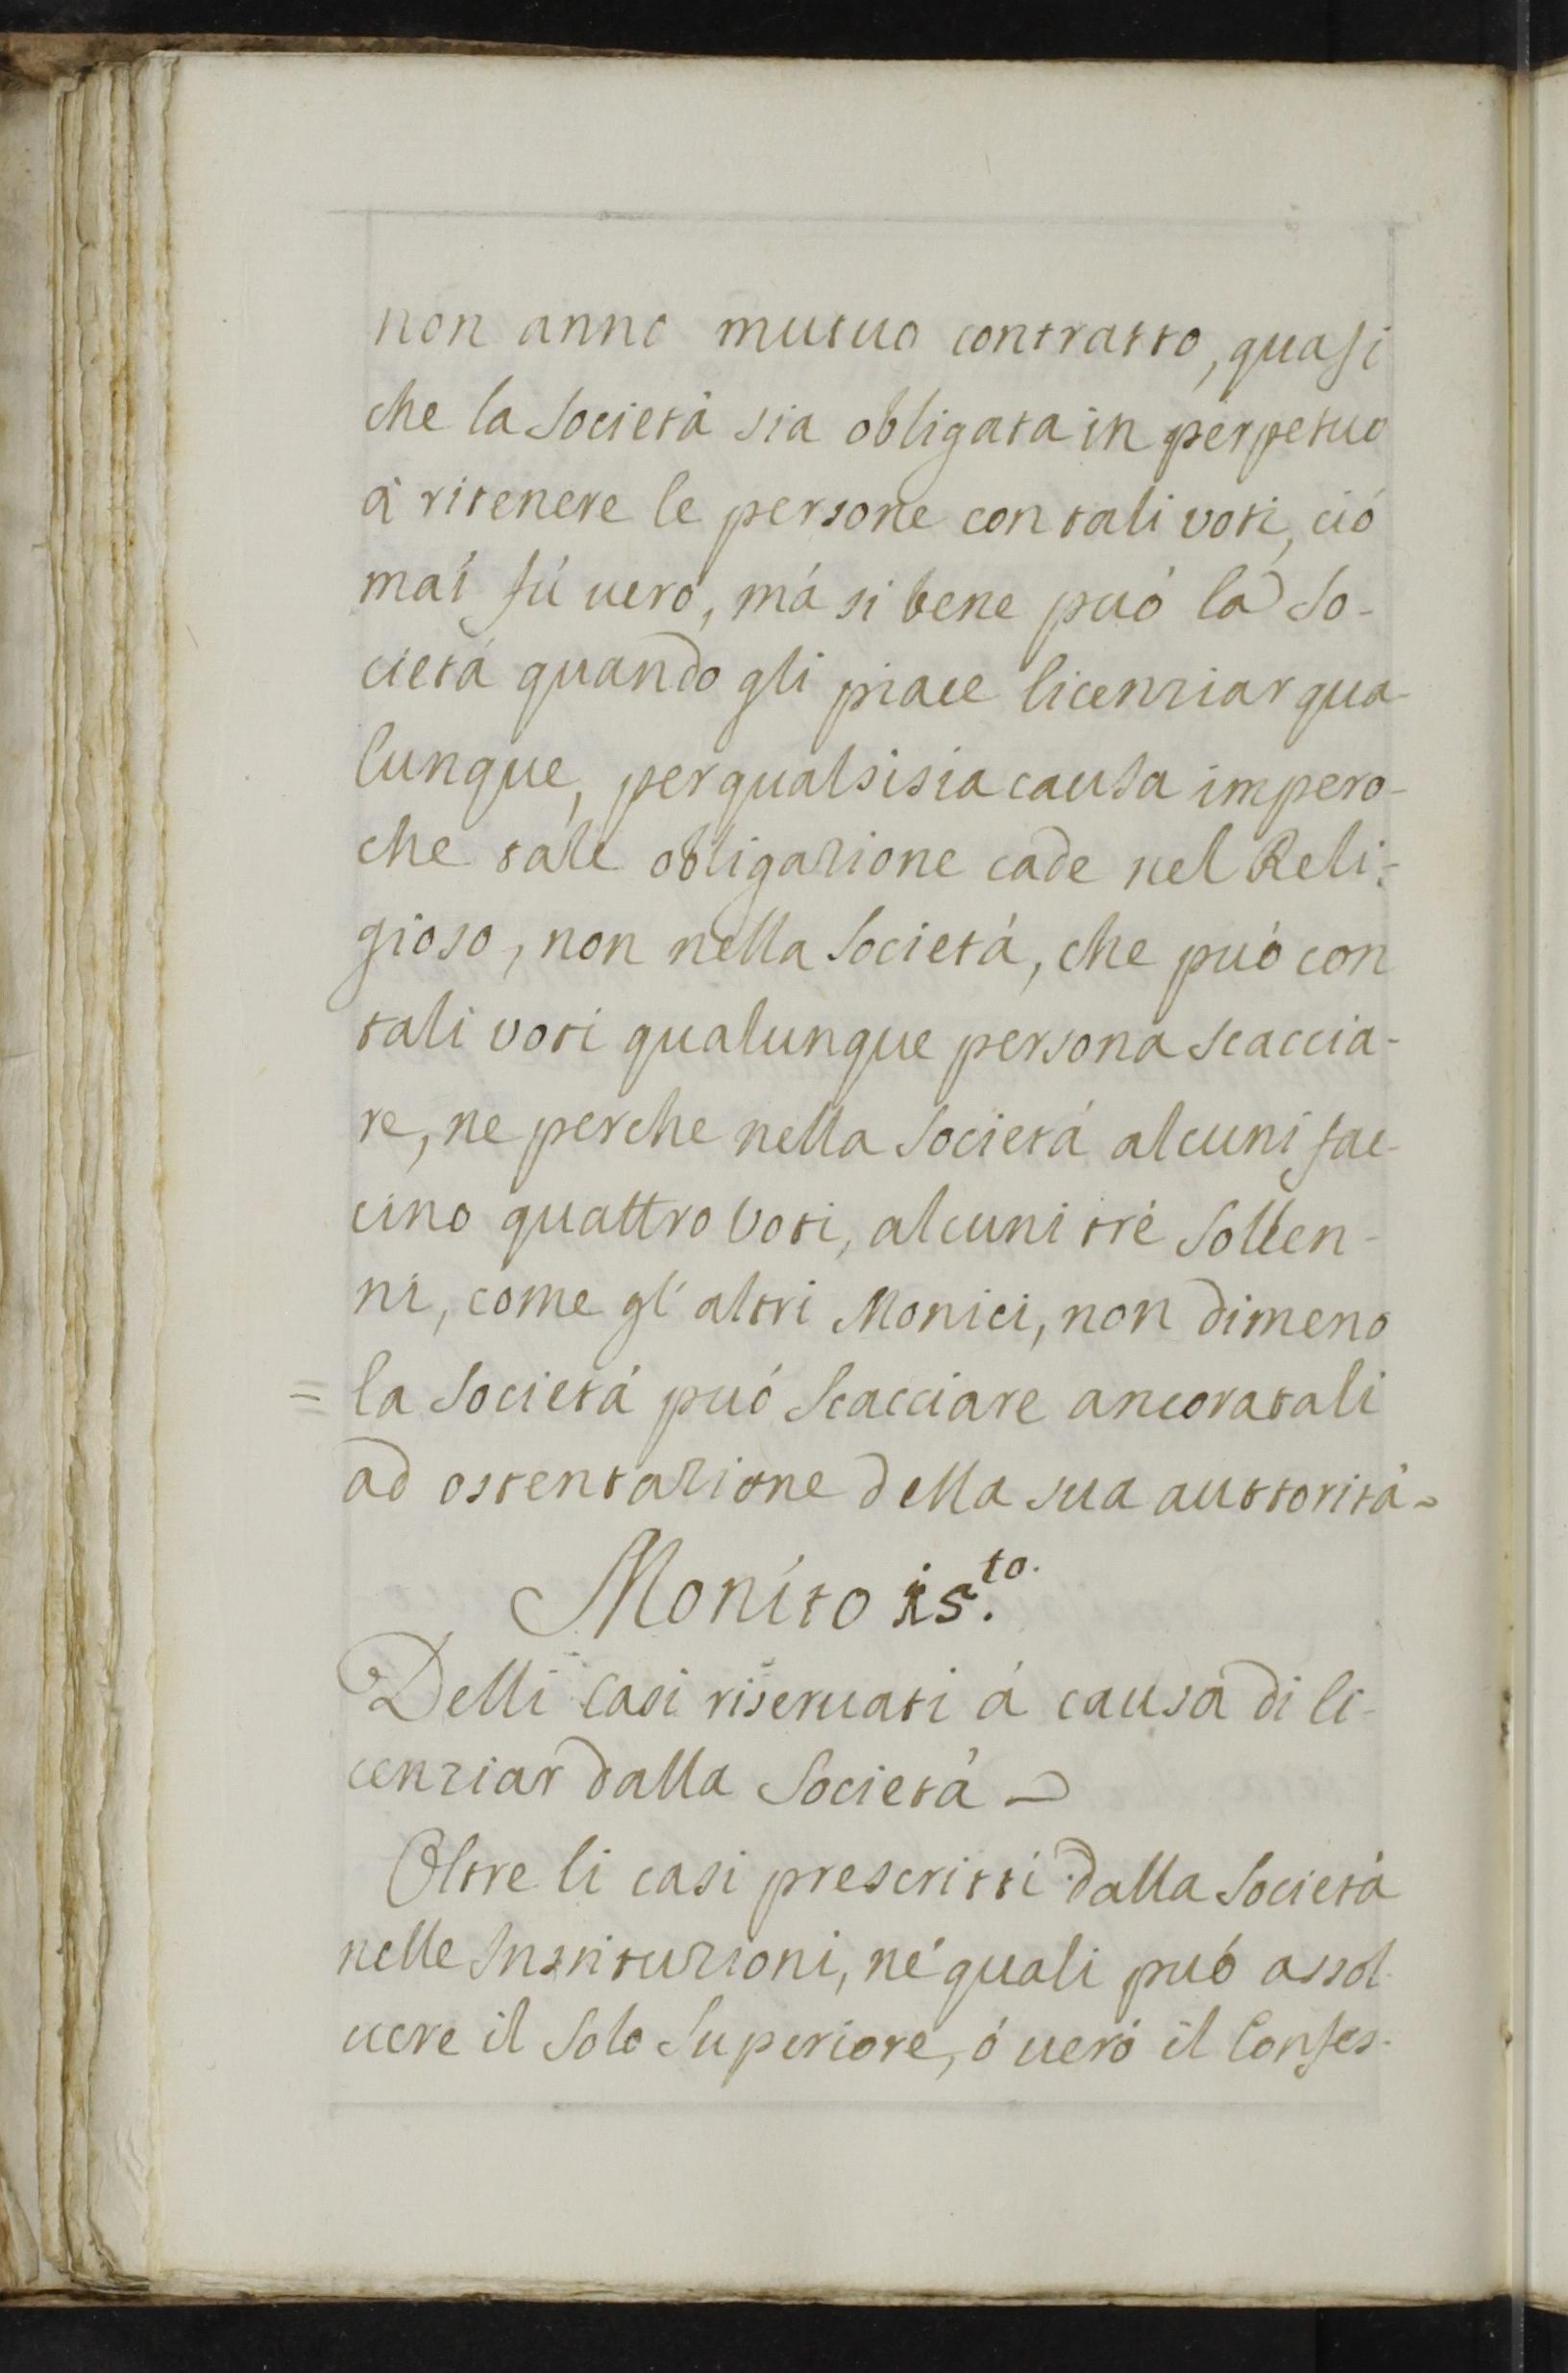 non anno mutuo contratto, quasi
che la Società sia obligata in perpetuo
à ritenere le persone con tali voti, ciò
mai fú uero, má si bene può la So-
cietá quando gli piace licenziar qua-
lunque, per qualsisia causa impero-
che tale obligazione cade nel Reli-
gioso, non nella Societá, che può con
tali voti qualunque persona scaccia-
re, ne perche nella Societá alcuni fac-
cino quattro Voti, alcuni trè Sollen-
ni, come gl'altri Monici, non dimeno
= la Societá puó Scacciare ancora tali
ad ostentazione della sua auttoritá
Monito 15.to
Delli Casi riseruati á causa di li-
cenziar dalla Societá
Oltre li casi prescritti dalla Società
nelle Instituzioni, né quali può assol-
uere il Solo Superiore, ó ueró il Confes-